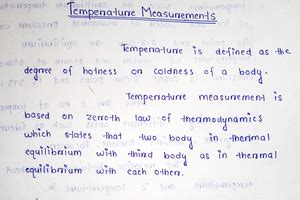 Temperature Measurements
Temperature is defined as the
degree of hotness on coldness of a body.
Temperature measurement is
based on zeroth law of thermodynamics
which states that two body in thermal
equilibrium with third body as in thermal
equilibrium with each other.